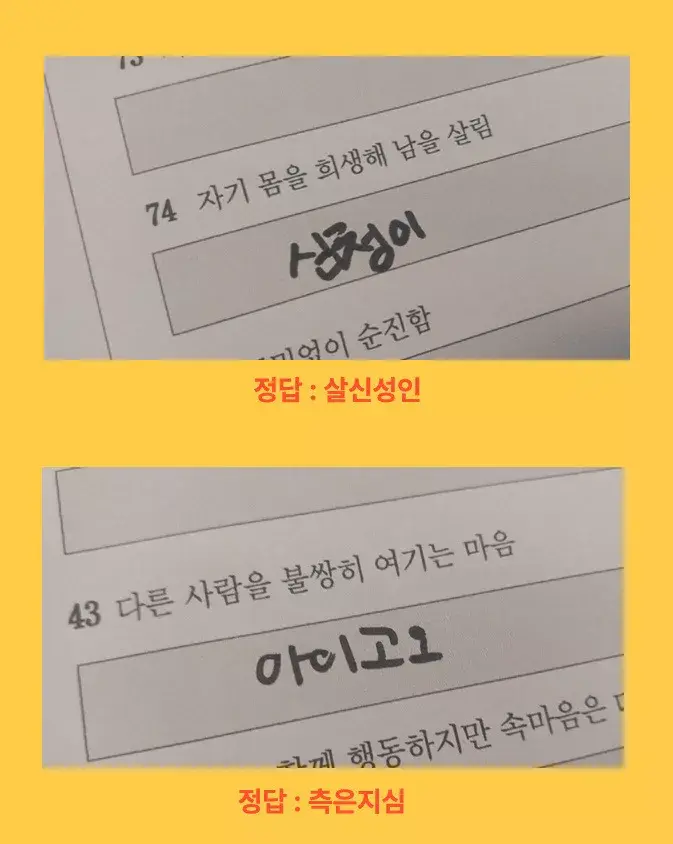 74 자기 몸을 희생해 남을 살림
심청이
순진함
정답 : 살신성인
43 다른 사람을 불쌍히 여기는 마음
아이고오
함께 행동하지만 속마음은
정답 : 측은지심